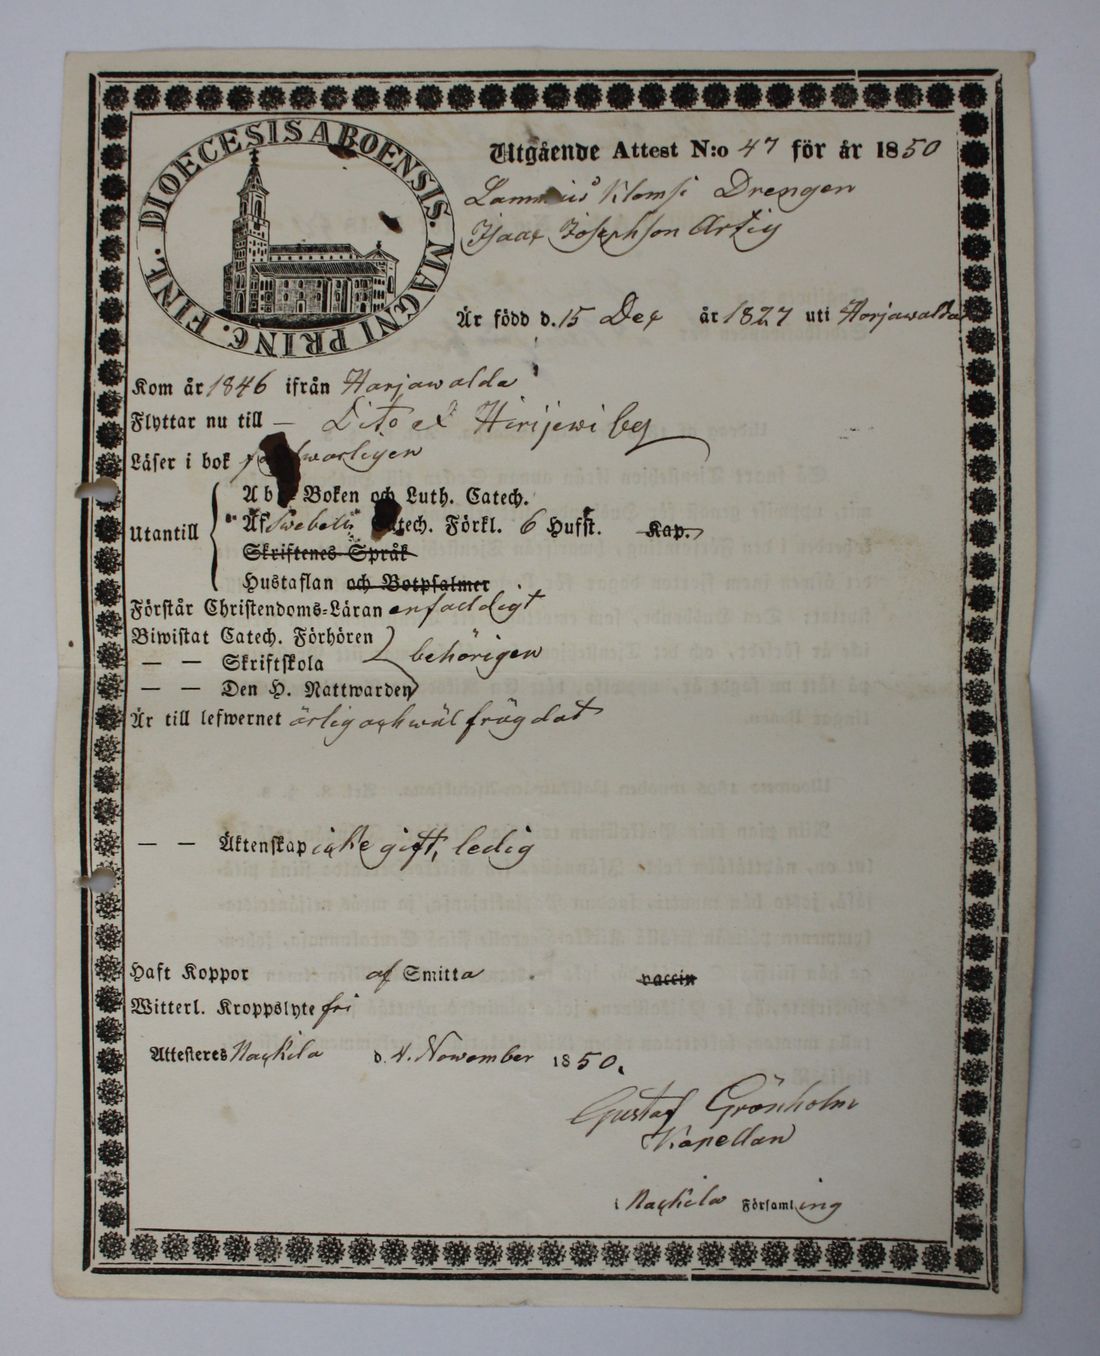 DIOECESIS ABOENSIS. MAGNI PRINC. FINL.
Utgående Attest N:o 47 för år 1850
Drengen
Isaac Josephson Artig
Är född d. 15 Dec år 1827 uti Harjawalda
Kom år 1846 ifrån Harjawalda
Flyttar nu till — Dito
Läser i bok
Ab Boken och Luth. Catech.
Utantill
Af Swebelii Catech. Förkl. 6 Hufst. Kap.
Skriftenes Språk
Hustaflan och Botpsalmer
Förstår Christendoms-Läran enfaldigt
Biwistat Catech. Förhören
— — Skriftskola behörigen
— — Den H. Nattwarden
Är till lefwernet ärlig och wäl frägdat
— — Äktenskap icke gift, ledig
Haft Koppor af Smitta vaccin
Witterl. Kroppslyte fri
Attesteras Nackila d. 4. November 1850.
Gustaf Grönholm
Kapellan
i Nackila Församling